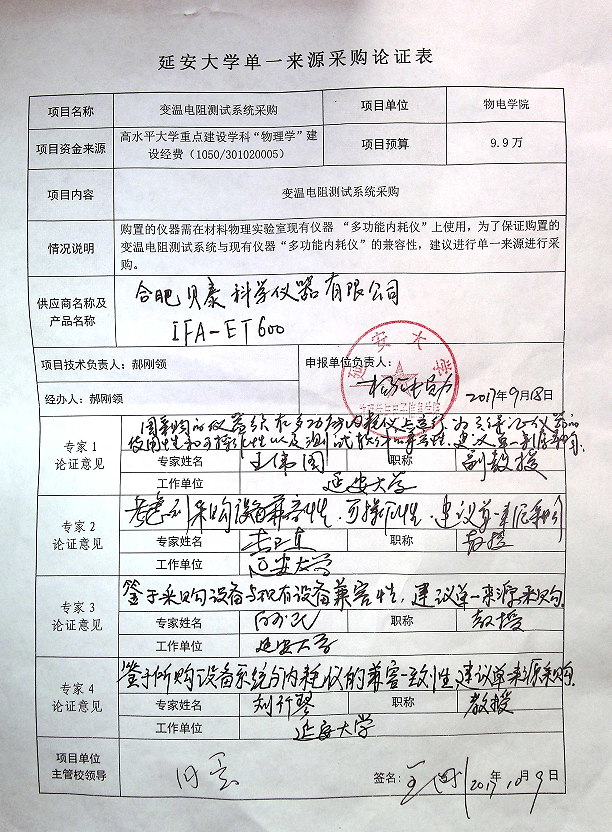 延安大学单一来源采购论证表
项目名称 变温电阻测试系统采购 项目单位 物电学院
项目资金来源 高水平大学重点建设学科“物理学”建
设经费（1050/301020005） 项目预算 9.9万
项目内容 变温电阻测试系统采购
情况说明 购置的仪器需在材料物理实验室现有仪器 “多功能内耗仪”上使用，为了保证购置的
变温电阻测试系统与现有仪器“多功能内耗仪”的兼容性，建议进行单一来源进行采
购。
供应商名称及
产品名称 合肥贝泰科学仪器有限公司
IFA-ET600
项目技术负责人：郝刚领 申报单位负责人：
延安大学
经办人：郝刚领 2017年9月18日
专家 1
论证意见 因采购的仪器须在多功能内耗仪上
使用性和可操作性以及测试 建议单一来源采购
专家姓名 王伟国 职称 副教授
工作单位 延安大学
专家 2
论证意见 考虑到采购设备兼容性，可操作性，建议单一来源采购
专家姓名 职称 教授
工作单位 延安大学
专家 3
论证意见 鉴于采购设备与现有设备兼容性，建议单一来源采购。
专家姓名 职称 教授
工作单位 延安大学
专家 4
论证意见 鉴于所购设备系统与内耗仪的兼容一致性，建议单一来源采购。
专家姓名 刘竹琴 职称 教授
工作单位 延安大学
项目单位
主管校领导 同意 签名： 2017年10月9日